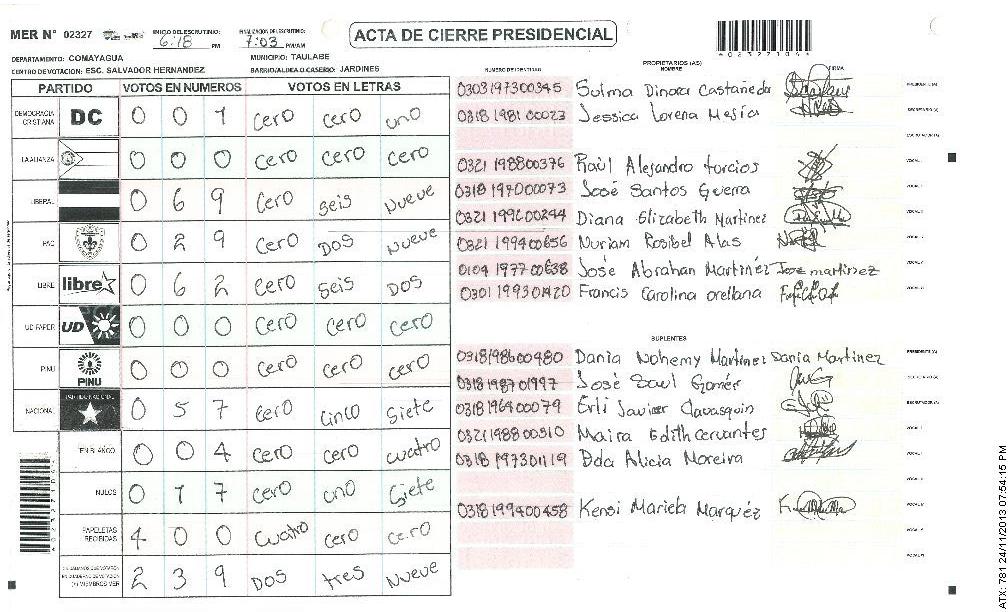 ACTA DE CIERRE PRESIDENCIAL
MER N° 02327
INICIO DEL ESCRUTINIO: 6:18 PM
FINALIZACION DEL ESCRUTINIO: 7:03 PM/AM
DEPARTAMENTO: COMAYAGUA
MUNICIPIO: TAULABE
CENTRO DE VOTACION: ESC. SALVADOR HERNANDEZ
BARRIO/ALDEA O CASERIO: JARDINES
PARTIDO VOTOS EN NUMEROS VOTOS EN LETRAS
DEMOCRACIA CRISTIANA DC 0 0 1 cero cero uno
LA ALIANZA 0 0 0 cero cero cero
LIBERAL 0 6 9 cero seis nueve
PAC 0 2 9 cero Dos nueve
LIBRE libre 0 6 2 cero seis DOS
UD FAPER UD 0 0 0 cero cero cero
PINU PINU 0 0 0 cero cero cero
NACIONAL PARTIDO NACIONAL 0 5 7 cero cinco siete
EN BLANCO 0 0 4 cero cero cuatro
NULOS 0 1 7 cero uno Siete
PAPELETAS RECIBIDAS 4 0 0 cuatro cero cero
2 3 9 DOS tres Nueve
(+) MIEMBROS MER
PROPIETARIOS (AS)
NUMERO DE IDENTIDAD NOMBRE FIRMA
0303197300345 Sulma Dinora Castañeda PRESIDENTE (A)
0318 1981 00023 Jessica Lorena Mejia SECRETARIO (A)
ESCRUTADOR (A)
0321 198800376 Raúl Alejandro torcios
0318 197000073 José Santos Guerra
0321 199600244 Diana Elizabeth Martinez
0321 199400656 Nuriam Rosibel Alas
0104 197700638 José Abrahan Martínez Jose martinez
0301 199301420 Francis Carolina orellana
SUPLENTES
0318198600480 Dania Nohemy Martinez Dania Martinez PRESIDENTE (A)
0318 198701997 José Saul Gomér SECRETARIO (A)
0318196400079 Erli Javier Clavasquin ESCRUTADOR (A)
0321198800310 Maira Edith cervantes
0318 197301119 Dda Alicia Moreira
0318 199400458 Kensi Mariela Marquéz
0 2 3 2 7 1 0 4
ATX: 781 24/11/2013 07:54:15 PM